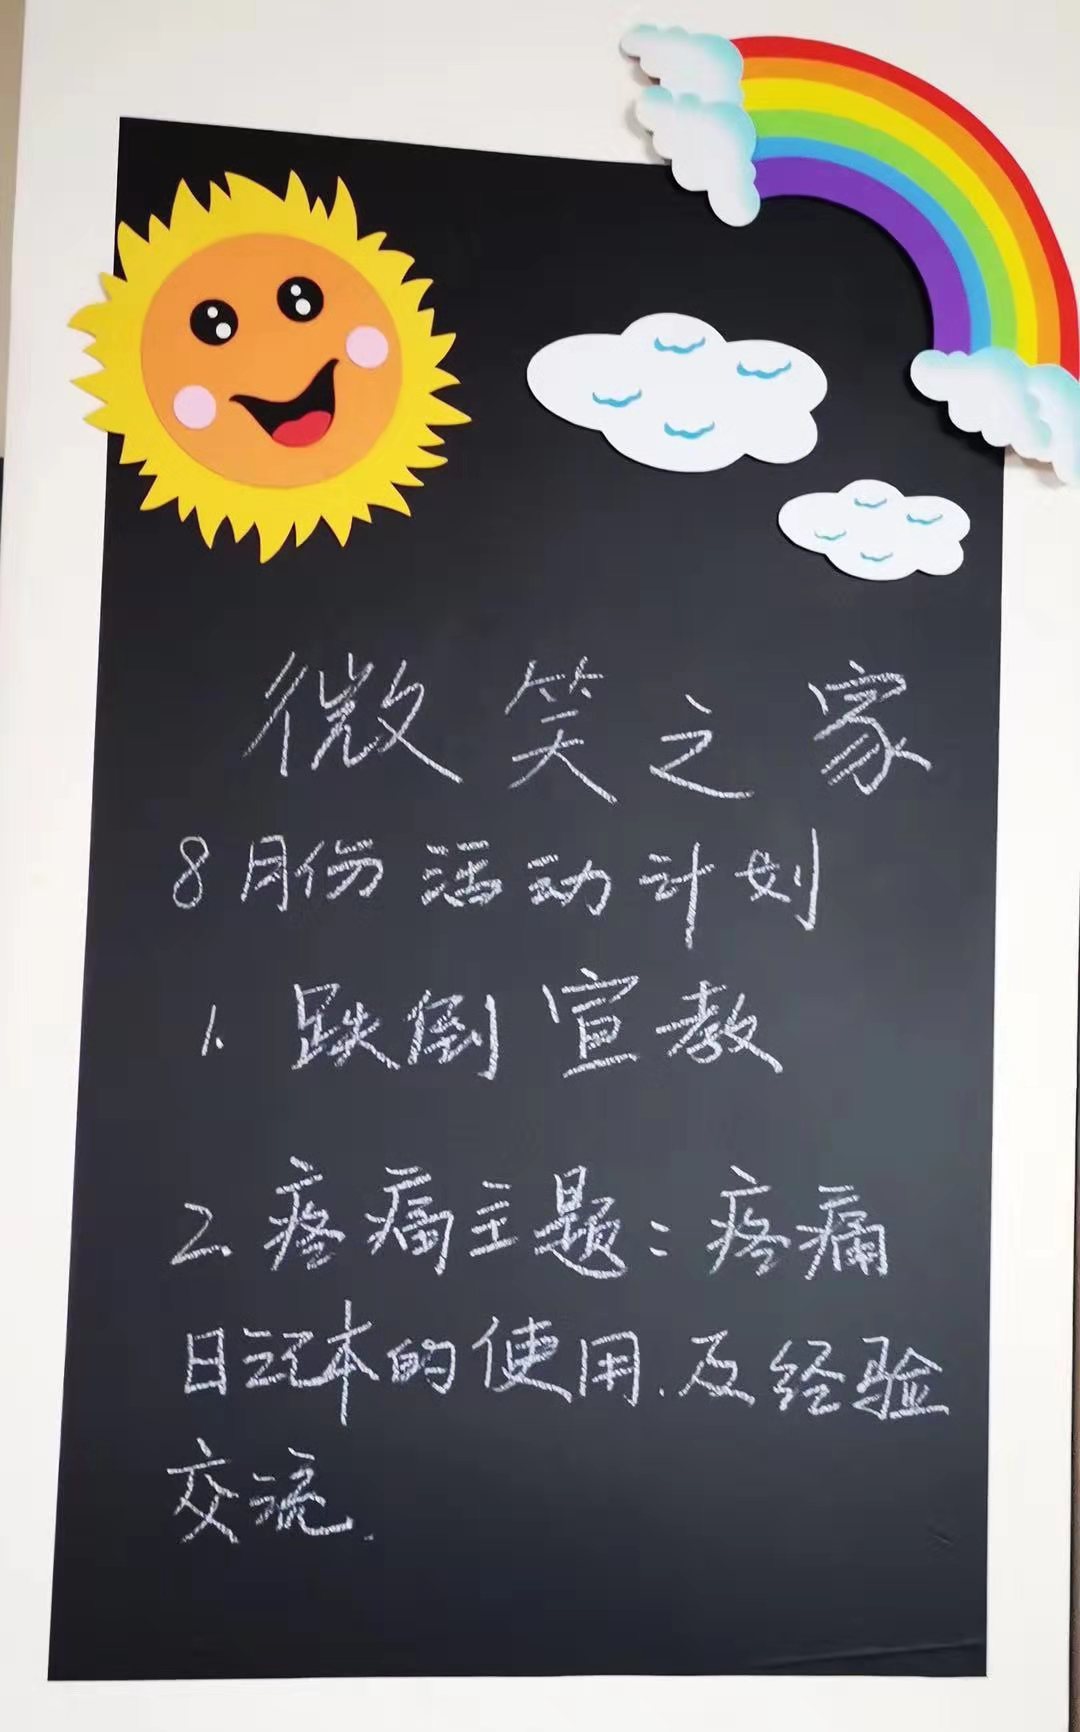 微笑之家
8月份活动计划
1. 跌倒宣教
2. 疼痛主题：疼痛
日记本的使用.及经验
交流.